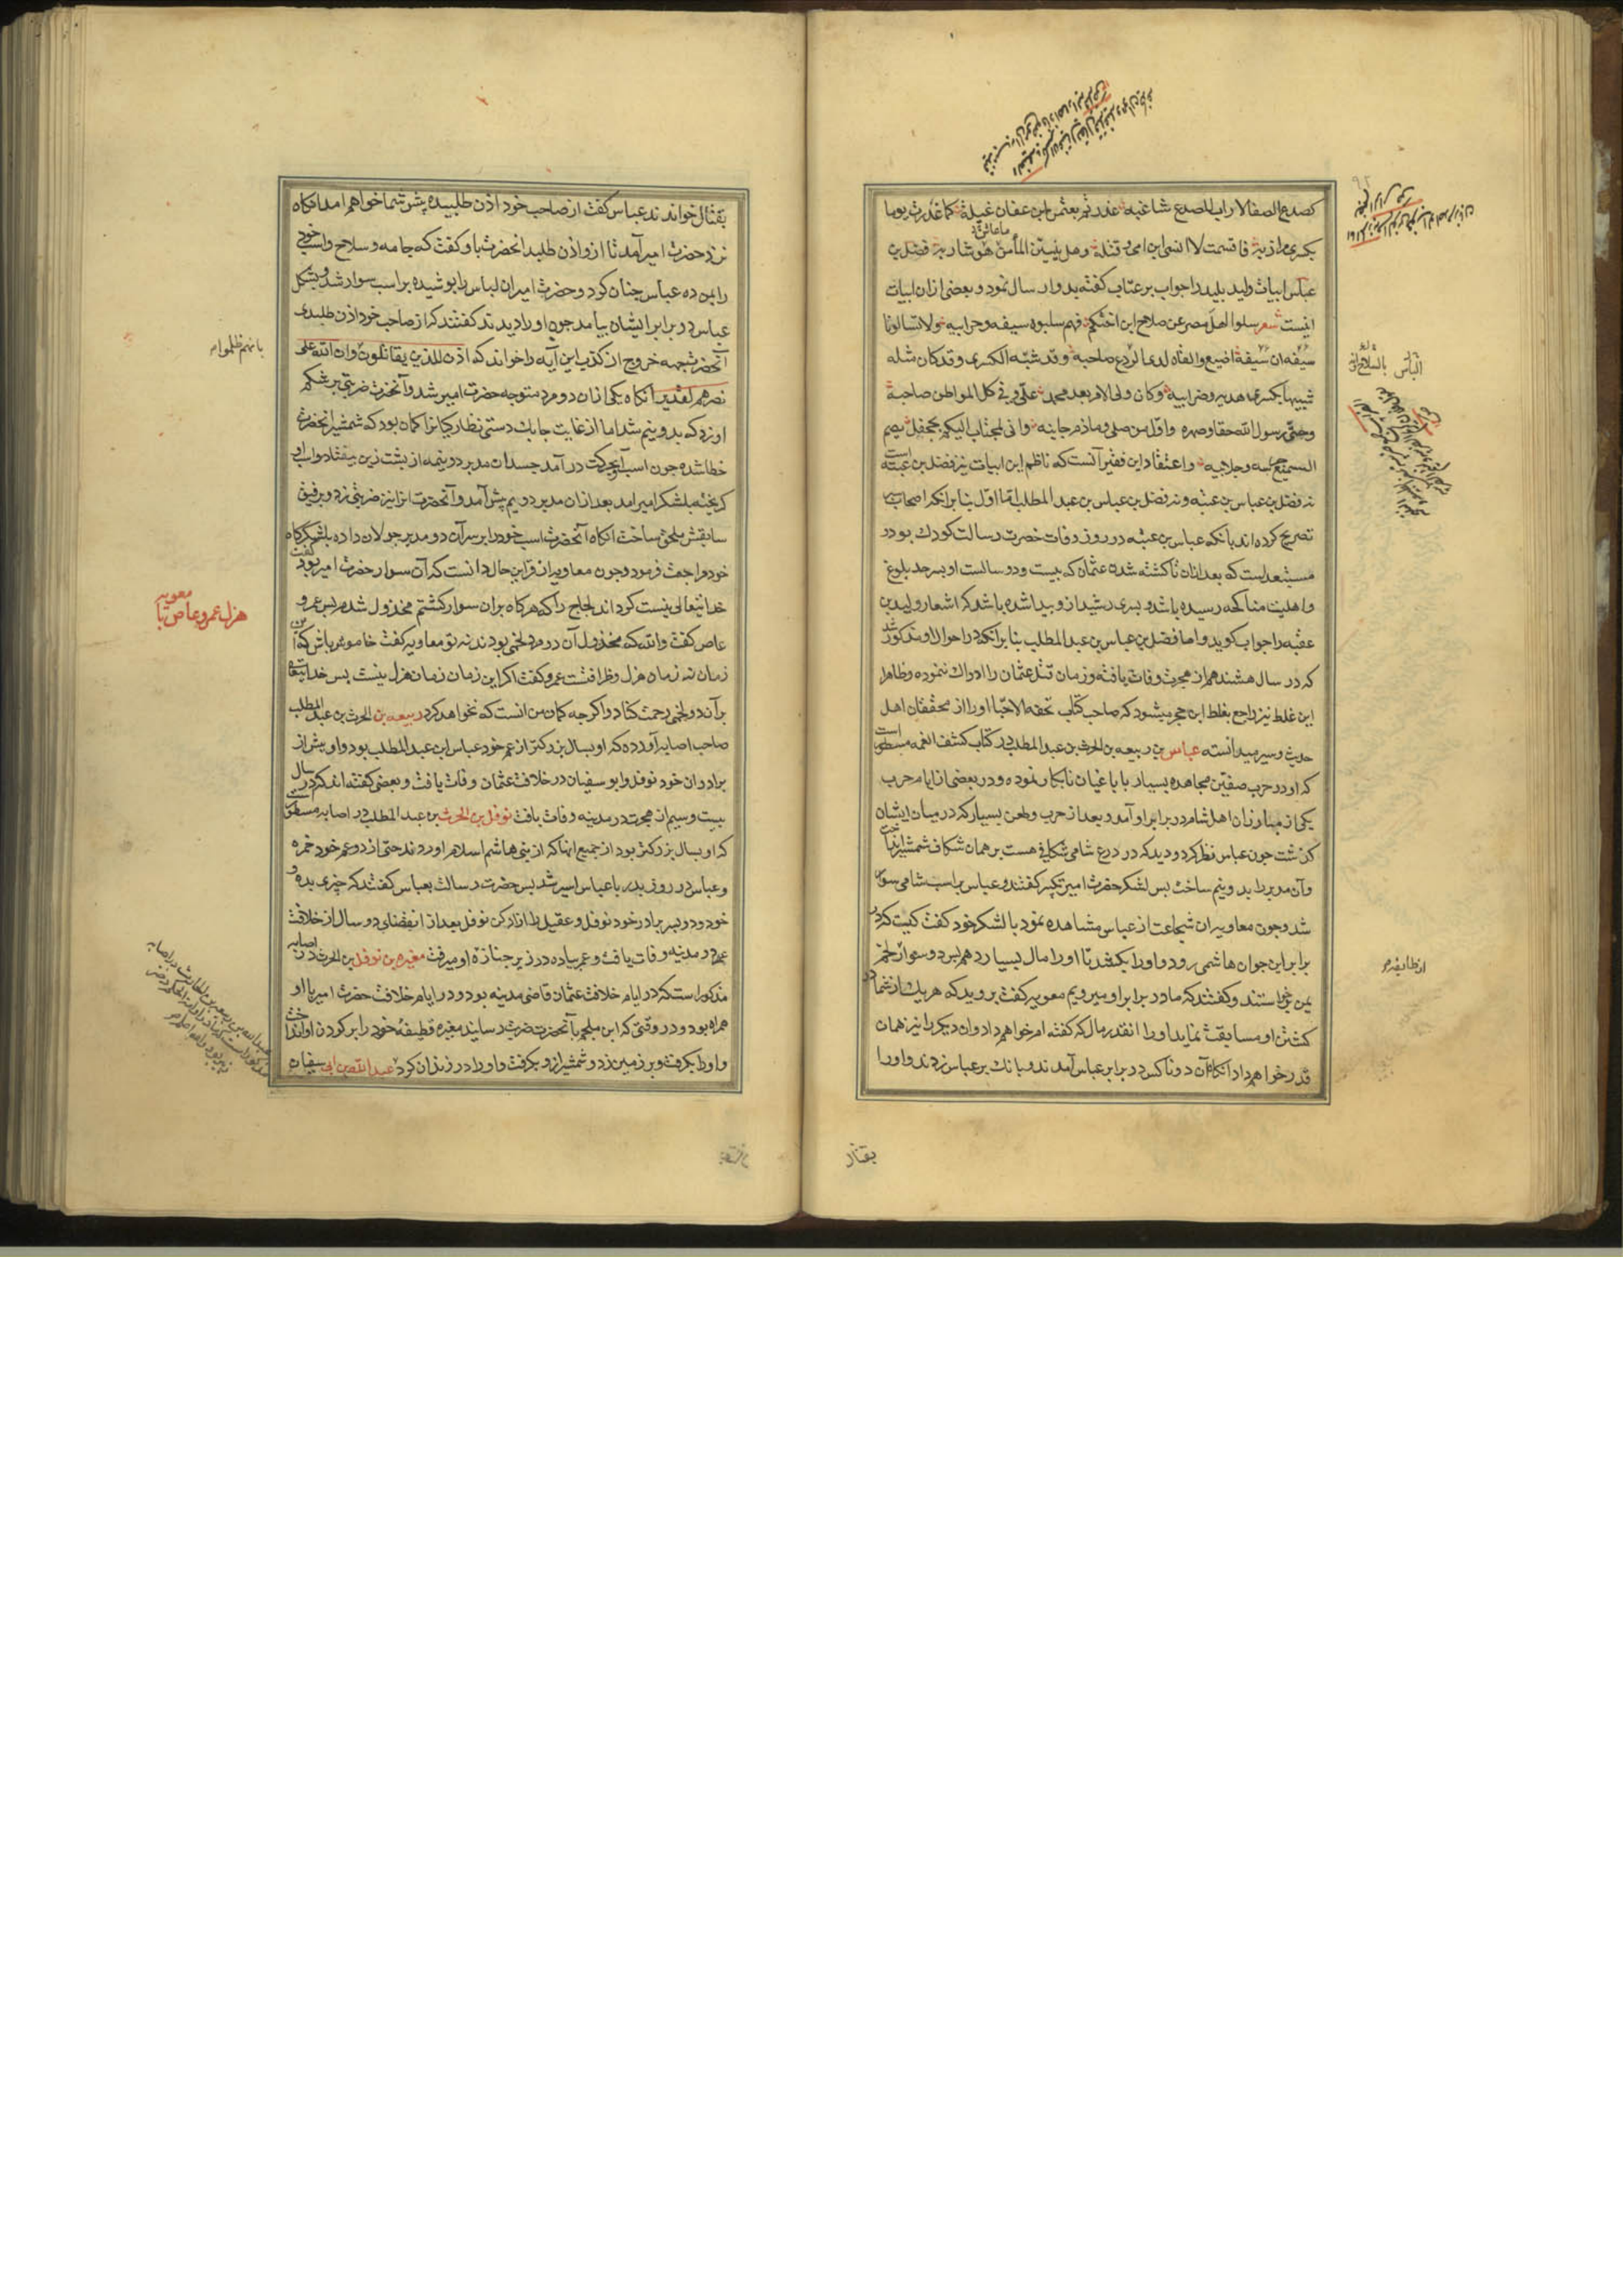 كصدع الصفا لا راب الصدع شاعبه غدرتم بعثمن ابن عفان غيلة كما غدرت يوما
بكسرى مرازبه فاقسمت لا انسى ابن امی وقتله وهل ينسين الماء من هو شاربه فضل بن
عباس ابيات وليد پليد را جواب بر عتاب كفته بدو ارسال نمود و بعضی از ان ابيات
اينست شعر سلوا اهل مصر عن سلاح ابن اختكم فهم سلبوه سيفه وحرابيه ولا تسالونا
سيفه ان سيفه اضيع والقاه لدى الروع صاحبه وقد شبه الكسرى وقد كان مثله
شبيها بكسرى هديه وضرابيه وكان ولی الامر بعد محمد علی وفی كل المواطن صاحبه
وصی رسول الله حقا وصهره واول من صلی وما ذم جانبه وانی لمجتاب اليكم بجحفل يصم
السميع جرسه وجلابيه واعتقاد اين فقير آنست كه ناظم اين ابيات نيز فضل بن عباس بن عتبه است
نه فضل بن عباس بن عتبه ونه فضل بن عباس بن عبد المطلب اما اول بنا بر انكه اصحاب سير
تصريح كرده اند بانكه عباس بن عتبه در روز وفات حضرت رسالت كودك بود در
مستبعد است كه بعد ازان تا كشته شدن عثمان كه بيست و دو سالست او بسر حد بلوغ
و اهليت مناكحه رسيده باشد و پسری رشيد ازو پيدا شده باشد كه اشعار وليد بن
عقبه را جواب كويد و اما فضل بن عباس بن عبد المطلب بنا بر انكه در احوال او مذكور شد
كه در سال هشتدهم از هجرت وفات يافته و زمان قتل عثمان را ادراك ننموده و ظاهرا
اين غلط نيز راجع بغلط ابن حجر ميشود كه صاحب كتاب تحفه الاحبا او را از محققان اهل
حديث و سير ميدانسته عباس بن ربيعه بن الحرث بن عبد المطلب در كتاب كشف الغمه مسطور است
كه او در حرب صفين مجاهده بسيار با باغيان نابكار نموده و در بعضی از ايام حرب
يكی از مبارزان اهل شام در برابر او آمد و بعد از حرب و طعن بسيار كه در ميان ايشان
كذشت چون عباس نظر كرد و ديد كه در درع شامی شكافی هست بر همان شكاف شمشير انداخت
و آن مدبر را بدو نيم ساخت پس لشكر حضرت امير تكبير كفتند و عباس بر اسب شامی سوار
شد و چون معاويه ان شجاعت از عباس مشاهده نمود با لشكر خود كفت كيست كه در
برابر اين جوان هاشمی رود و او را بكشد تا او را مال بسيار دهم اين دو سوار از لخم
يمن برخاستند و كفتند كه ما در برابر او ميرويم معويه كفت برويد كه هر يك از شما در
كشتن او مسابقت نمايد او را انقدر مال كه كفته ام خواهم داد و ان ديكر را نيز همان
قدر خواهم داد انكاه آن دو ناكس در برابر عباس آمدند و بانك بر عباس زدند و او را
بقتال
بقتال خواندند عباس كفت از صاحب خود اذن طلبيده پيش شما خواهم امد انكاه
نزد حضرت امير آمد تا ازو اذن طلبد انحضرت با و كفت كه جامه و سلاح و اسب خود
را بمن ده عباس چنان كرد و حضرت امير ان لباس را پوشيده بر اسب سوار شد و بشكل
عباس در برابر ايشان بيامد چون او را ديدند كفتند كه از صاحب خود اذن طلبيدی
آنحضرت بجهه خروج از كذب اين آيه را خواند كه اذن للذين يقاتلون وان الله علی
نصرهم لقدير انكاه يكی از ان دو مرد متوجه حضرت امير شد و آنحضرت ضربتی بر شكم
او زد كه بدو نيم شد اما از غايت چابك دستی نظاركيانرا كمان بود كه شمشير انحضرت
خطا شده چون اسب او بحركت در آمد جسد ان مدبر دو نيمه از پشت زين بيفتاد و اسب او
كريخته بلشكر امير امد بعد از ان مدبر دويم پيش آمد و آنحضرت انرا نيز ضربتی زد و برفيق
سابقش ملحق ساخت انكاه آنحضرت اسب خود را بر سر آن دو مدبر جولان داده بلشكركاه
خود مراجعت فرمود و چون معاويه از قراين حال دانست كه آن سوار حضرت امير بود كفت
خدايتعالی پست كرداند لجاج را كه هركاه بران سوار كشتم مخذول شدم پس عمرو
عاص كفت والله كه مخذول آن دو مرد لخمی بودند نه تو معاويه كفت خاموش باش كه اين
زمان نه زمان هزل و ظرافتست عمرو كفت اكر اين زمان زمان هزل نيست پس خدايتعالی
بر آن دو لخمی رحمت كناد و اكرچه كمان من انست كه نخواهد كرد ربيعه بن الحرث بن عبد المطلب
صاحب اصابه آورده كه او بسال بزركتر از عم خود عباس ابن عبد المطلب بود و او پيش از
برادران خود نوفل و ابو سفيان در خلافت عثمان وفات يافت و بعضی كفته اند كه در سال
بيست و سيم از هجرت در مدينه وفات يافت نوفل بن الحرث بن عبد المطلب در اصابه مسطور است
كه او بسال بزركتر بود از جميع انها كه از بنی هاشم اسلام اوردند حتی از دو عم خود حمزه
و عباس در روز بدر با عباس اسير شد پس حضرت رسالت بعباس كفتند كه چيزی بده و
خود و دو پسر برادر خود نوفل و عقيل را ازاد كن نوفل بعد از انقضای دو سال از خلافت
عمر در مدينه وفات يافت و عمر پياده در زير جنازه او ميرفت مغيره بن نوفل بن الحرث در اصابه
مذكور است كه در ايام خلافت عثمان قاضی مدينه بود و در ايام خلافت حضرت امير با او
همراه بود و در وقتی كه ابن ملجم بآنحضرت ضربت رسانيد مغيره قطيفهٔ خود را بر كردن او انداخت
و او را بكرفت و بر زمين زد و شمشير ازو بكرفت و او را در زندان كرد عبد الله بن ابی سفيان
هزل عمرو عاص با
معويه
بانهم ظلموا